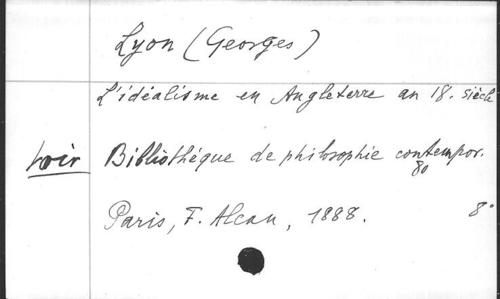 Lyon (Georges)
L'idéalisme en Angleterre au 18. siècle
voir Bibliothéque de philosophie contempor.
80
Paris, F. Alcan, 1888. 8°